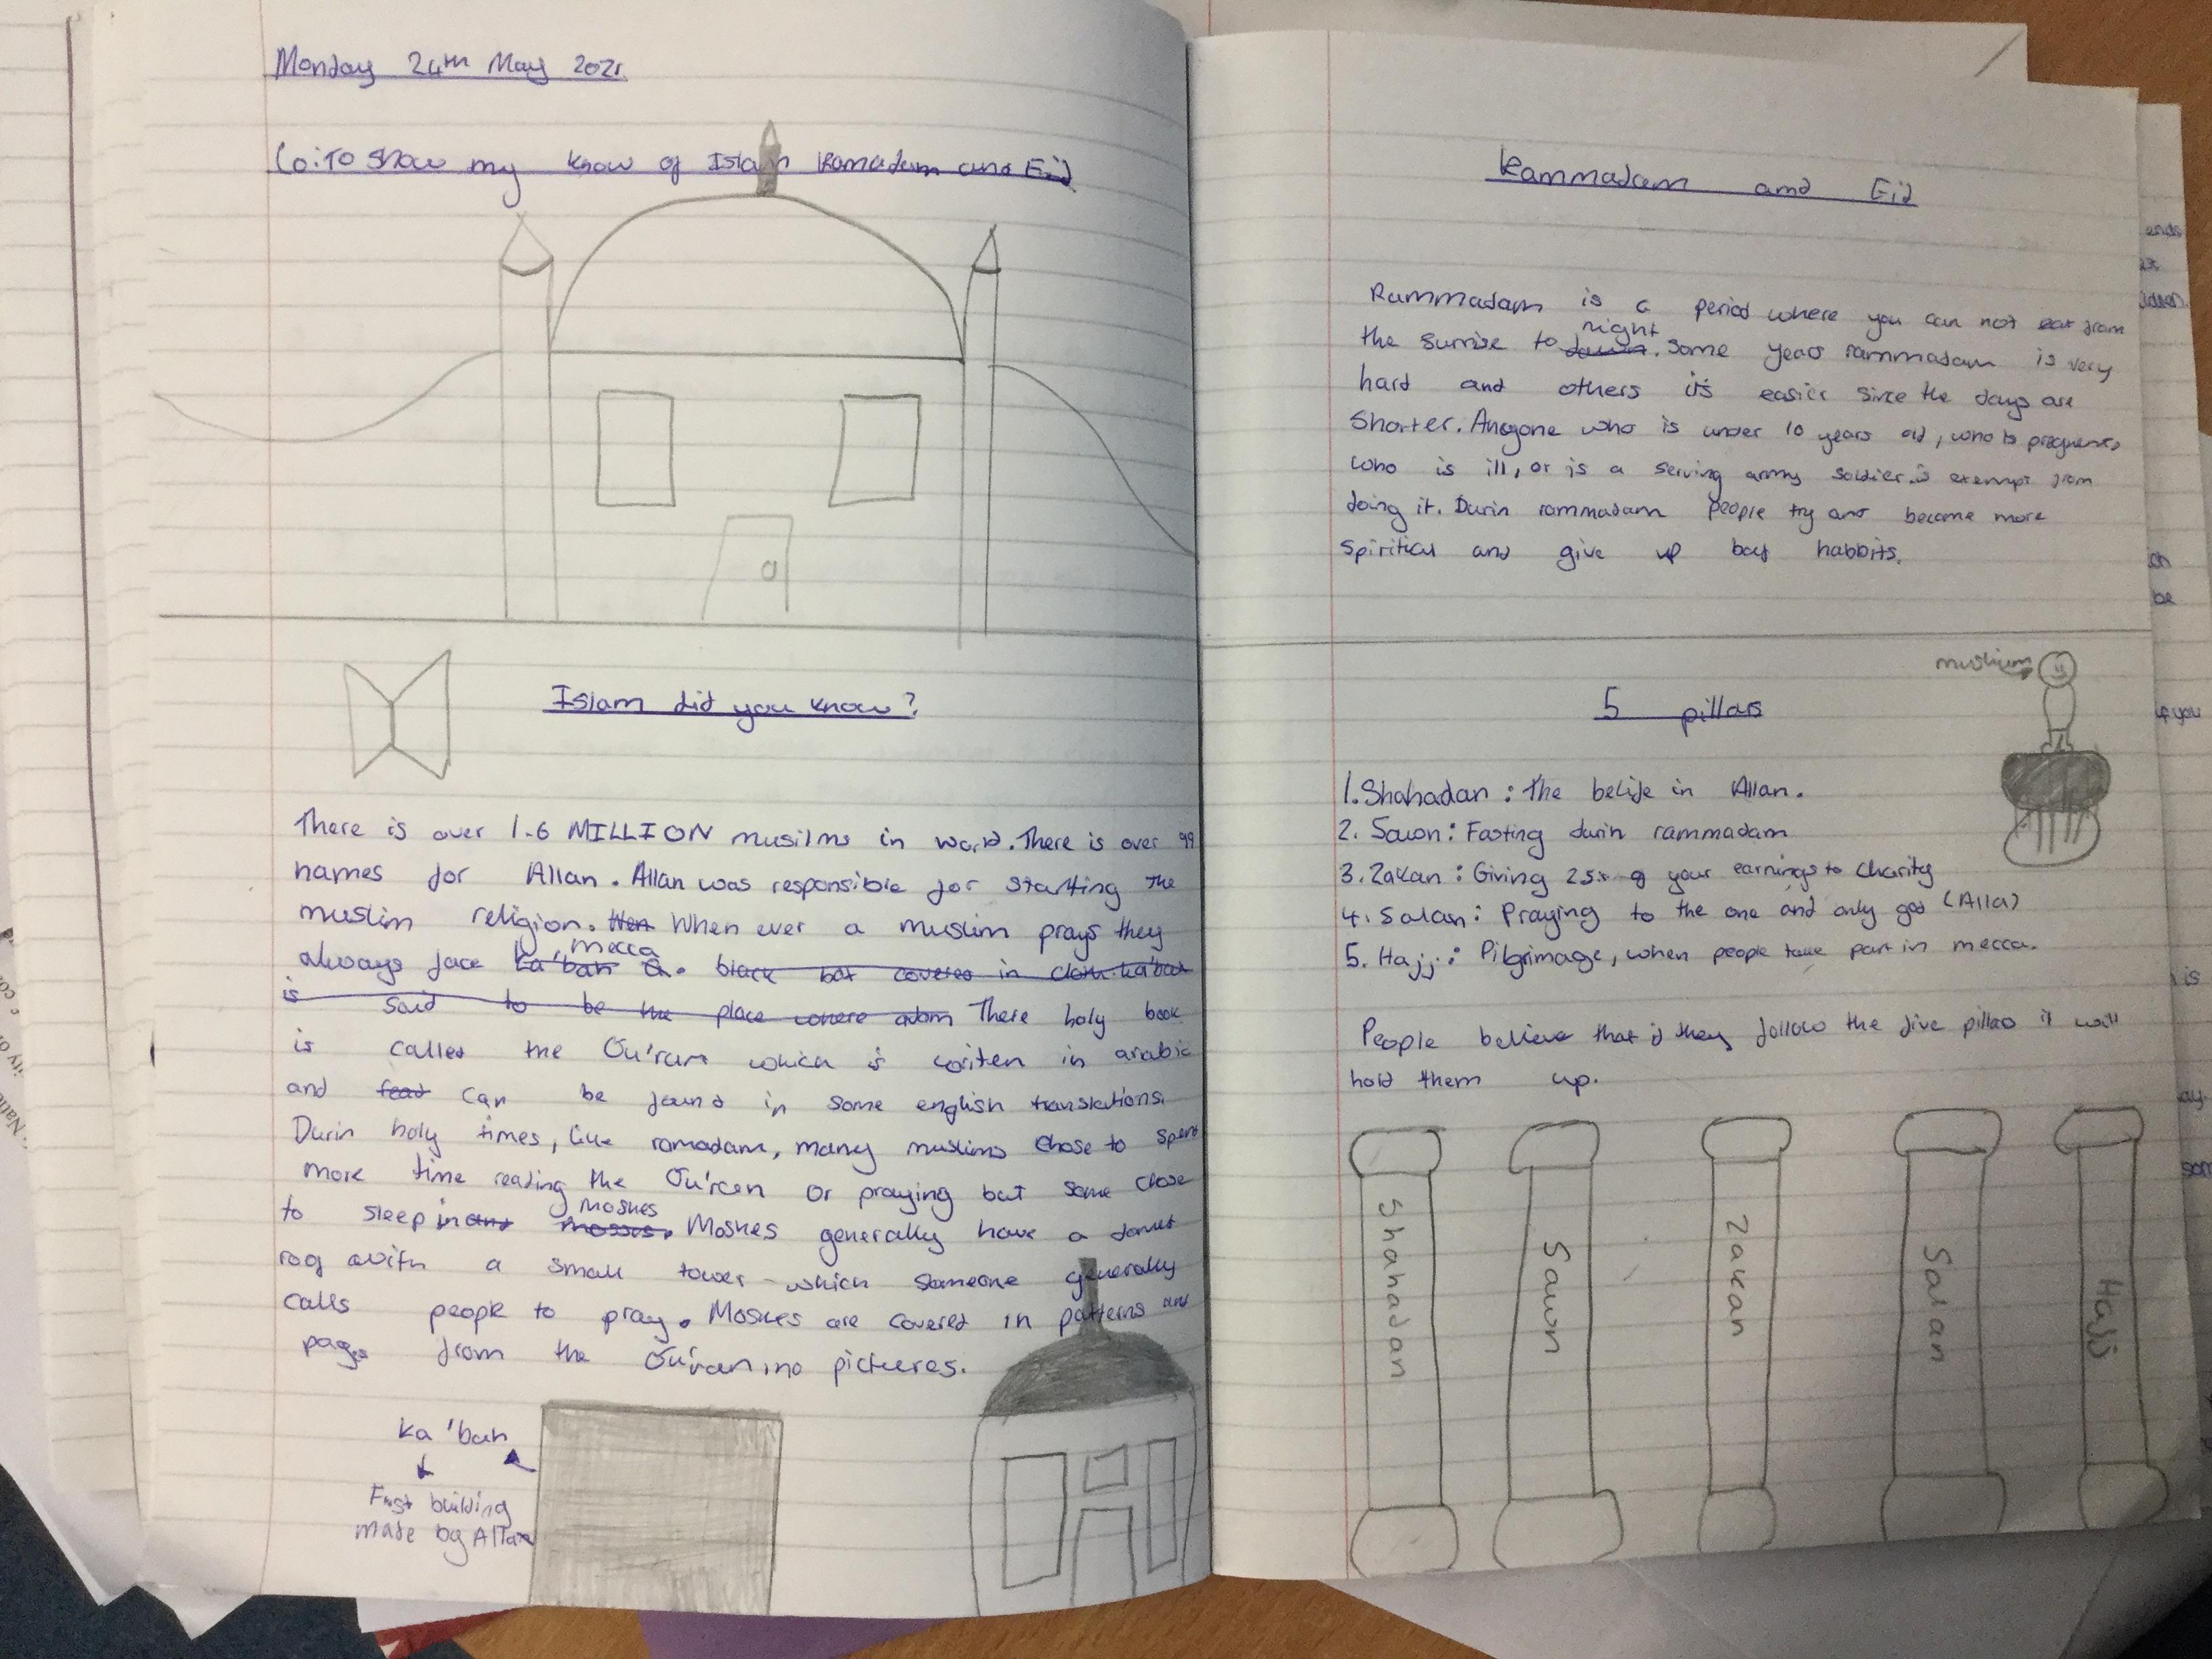 Monday 24th May 2021
Lo: To show my know of Islam Ramadam and Eid
Islam did you know?
There is over 1.6 MILLION musilms in world. There is over 99
names for Allah. Allah was responsible for starting the
muslim religion. When ever a muslim prays they
always face ka'bah mecca. black bat covered in cloth. ka'bat
is said to be the place where adam There holy book
is called the Qu'ran which is writen in arabic
and can be found in some english translations.
Durin holy times, like ramadam, many muslims chose to spend
more time reading the Qu'ran or praying but some chose
to sleep in and Moskes mosses. Moskes generally have a
with a small tower which someone generally
calls people to pray. Moskes are covered in patterns and
pages from the Qu'ran, no pictures.
ka'bah
First building
made by Allah
Rammadam and Eid
Rammadam is a period where you can not eat from
the sunrise to dawn night. Some years rammadam is very
hard and others it's easier since the days are
shorter. Anyone who is under 10 years old, who is pregnent,
who is ill, or is a serving army soldier is exempt from
doing it. Durin rammadam people try and become more
spiritical and give up bad habbits.
muslim
5 pillars
1. Shahadah: The belife in Allah.
2. Sawn: Fasting durin rammadam
3. Zakah: Giving 25% of your earnings to charity
4. Salah: Praying to the one and only god (Alla)
5. Hajj: Pilgrimage, when people take part in mecca.
People believe that if they follow the five pillars it will
hold them up.
Shahadah
Sawn
Zakah
Salah
Hajj